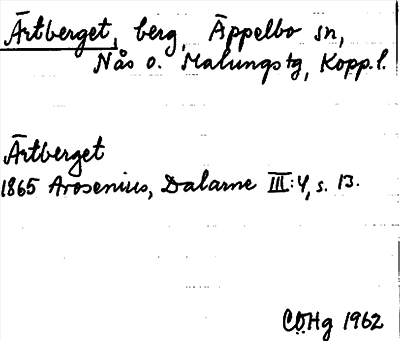 Ärtberget, berg, Äppelbo sn,
Nås o. Malungs tg, Kopp.l.
Ärtberget
1865 Arosenius, Dalarne III:4, s. 13.
CÖHg 1962